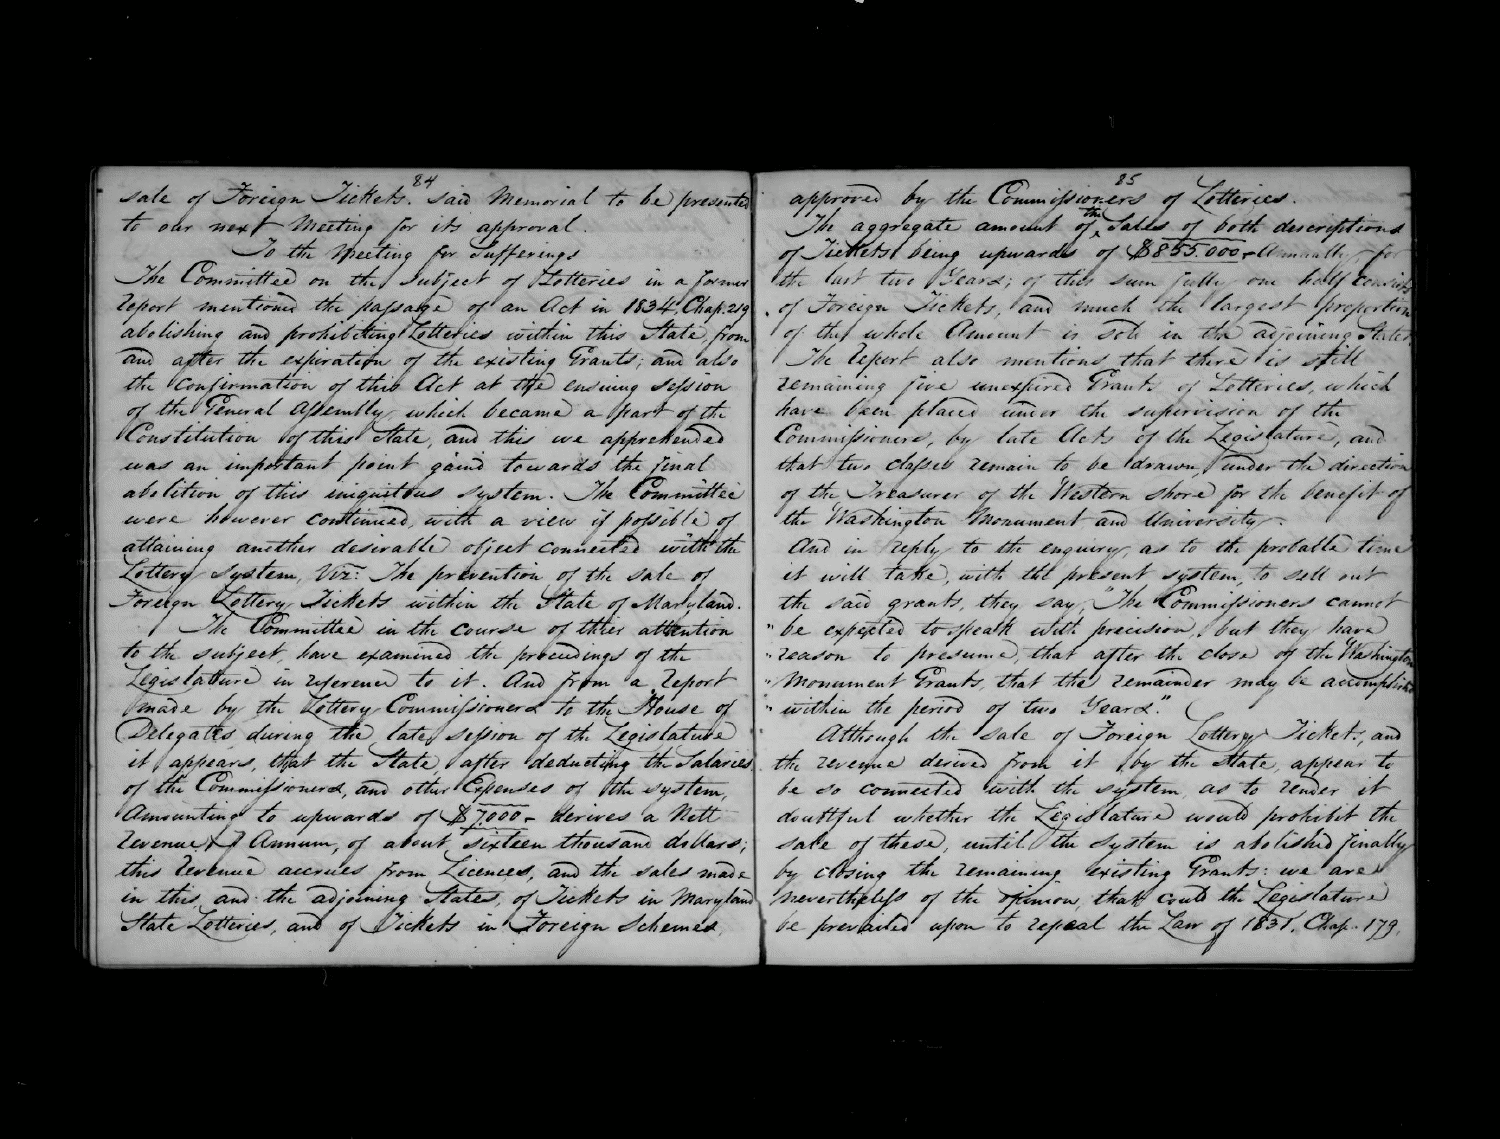 84
sale of Foreign Tickets. said Memorial to be presented
to our next Meeting for its approval.
To the Meeting for Sufferings
The Committee on the Subject of Lotteries in a former
report mentioned the passage of an Act in 1834, Chap. 219
abolishing and prohibiting Lotteries within this State, from
and after the expiration of the existing Grants; and also
the Confirmation of this Act at the ensuing session
of the General Assembly, which became a part of the
Constitution of this State, and this we apprehended
was an important point gain'd towards the final
abolition of this iniquitous system. The Committee
were however continued, with a view if possible of
attaining another desirable object connected with the
Lottery System, Viz: The prevention of the sale of
Foreign Lottery Tickets within the State of Maryland.
The Committee in the course of thier attention
to the subject, have examined the proceedings of the
Legislature in reference to it. And from a report
made by the Lottery Commissioners to the House of
Delegates, during the late session of the Legislature
it appears, that the State, after deducting the Salaries
of the Commissioners, and other Expenses of the system,
Amounting to upwards of $7.000 - derives a Nett
revenue Annum, of about sixteen thousand dollars;
this Revenue accrues from Licences, and the sales made
in this, and the adjoining States, of Tickets in Maryland
State Lotteries, and of Tickets in Foreign Schemes,
85
approved by the Commissioners of Lotteries.
The aggregate amount of the Sales of both descriptions
of Tickets being upwards of $855.000 - Annually, for
the last two Years; of this sum fully one half consists
of Foreign Tickets, and much the largest proportion
of the whole Amount is sold in the adjoining States.
The report also mentions that there is still
remaining five unexpired Grants of Lotteries, which
have been placed under the supervision of the
Commissioners, by late Acts of the Legislature, and
that two classes remain to be drawn, under the direction
of the Treasurer of the Western shore for the benefit of
the Washington Monument and University.
And in reply to the enquiry, as to the probable time
it will take, with the present system, to sell out
the said grants, they say, "The Commissioners cannot
"be expected to speak with precision, but they have
"reason to presume, that after the close of the Washington
"Monument Grants, that the remainder may be accomplished
"within the period of two Years."
Although the sale of Foreign Lottery Tickets, and
the revenue derived from it by the State, appear to
be so connected with the system, as to render it
doubtful whether the Legislature would prohibit the
sale of these, until the system is abolished finally
by closing the remaining existing Grants: we are
nevertheless of the opinion, that could the Legislature
be prevailed upon to repeal the Law of 1831. Chap. 179,